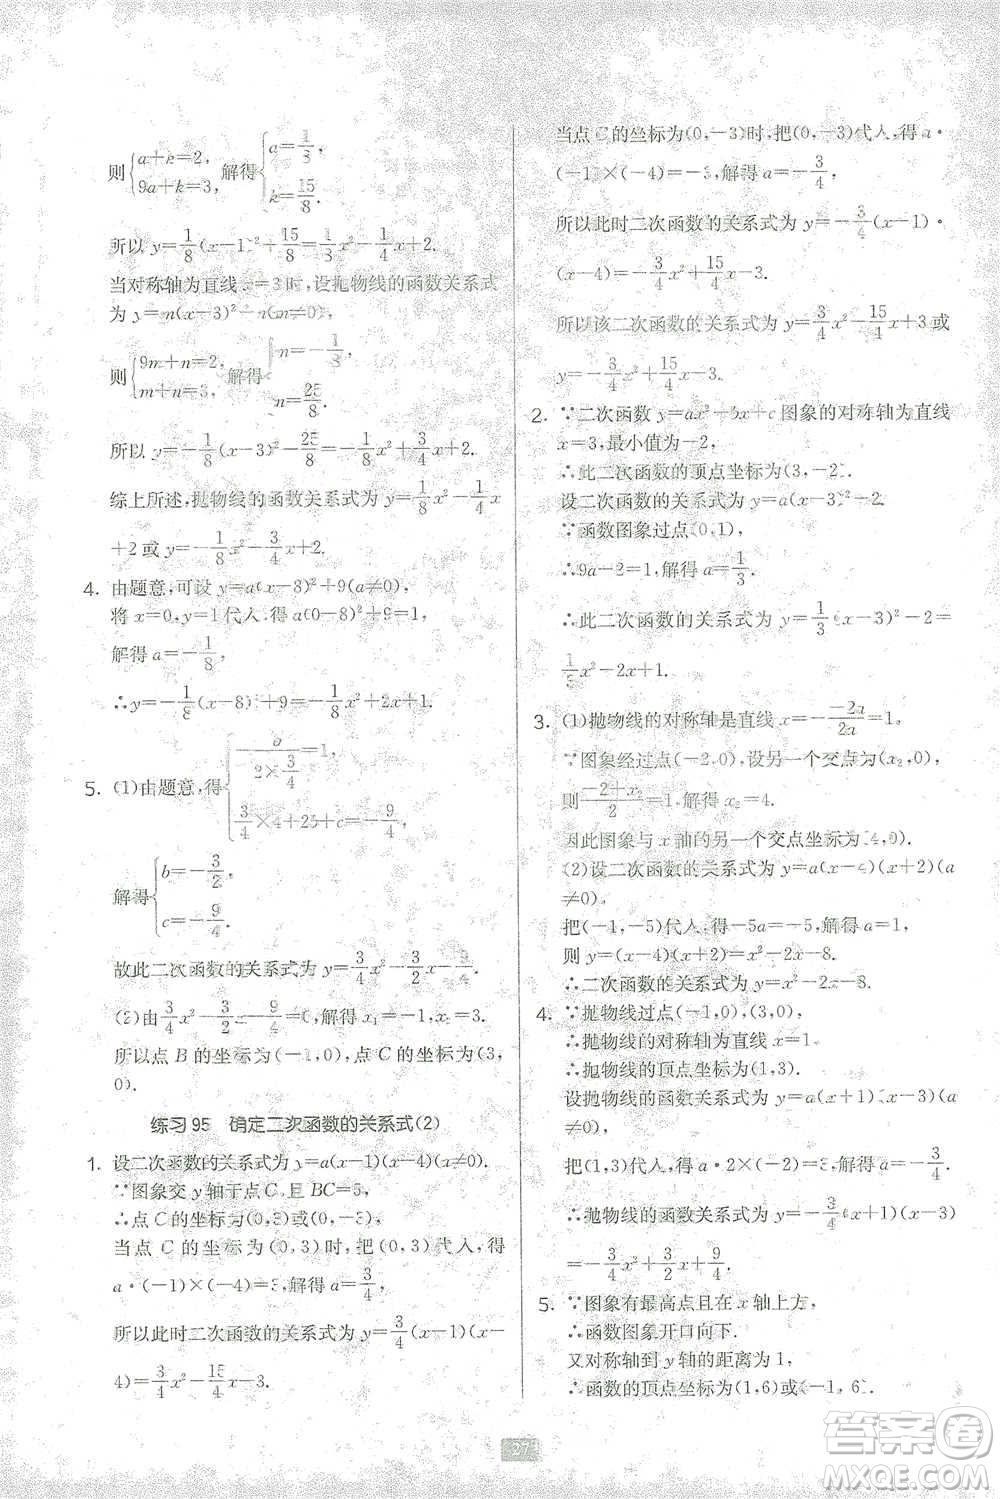 则{a+k=2, 9a+k=3, 解得{a=1/8, k=15/8.
所以 y=1/8(x-1)²+15/8=1/8x²-1/4x+2.
当对称轴为直线 x=3 时,设抛物线的函数关系式
为 y=m(x-3)²+n(m≠0),
则{9m+n=2, m+n=3, 解得{m=-1/8, n=25/8.
所以 y=-1/8(x-3)²+25/8=-1/8x²+3/4x+2.
综上所述,抛物线的函数关系式为 y=1/8x²-1/4x
+2 或 y=-1/8x²+3/4x+2.
4. 由题意,可设 y=a(x-8)²+9(a≠0),
将 x=0,y=1代入,得 a(0-8)²+9=1,
解得 a=-1/8,
∴y=-1/8(x-8)²+9=-1/8x²+2x+1.
5. (1)由题意,得{-b/(2×3/4)=1, 3/4×4+2b+c=-9/4,
解得{b=-3/2, c=-9/4.
故此二次函数的关系式为 y=3/4x²-3/2x-9/4.
(2)由3/4x²-3/2x-9/4=0,解得 x₁=-1,x₂=3.
所以点 B 的坐标为(-1,0),点 C 的坐标为(3,
0).
练习 95 确定二次函数的关系式(2)
1. 设二次函数的关系式为 y=a(x-1)(x-4)(a≠0).
∵图象交 y轴于点 C,且 BC=5,
∴点 C的坐标为(0,3)或(0,-3).
当点 C 的坐标为(0,3)时,把(0,3)代入,得
a·(-1)×(-4)=3,解得 a=3/4,
所以此时二次函数的关系式为 y=3/4(x-1)(x-
4)=3/4x²-15/4x+3.
当点 C的坐标为(0,-3)时,把(0,-3)代入,得 a·
(-1)×(-4)=-3,解得 a=-3/4,
所以此时二次函数的关系式为 y=-3/4(x-1)·
(x-4)=-3/4x²+15/4x-3.
所以该二次函数的关系式为 y=3/4x²-15/4x+3 或
y=-3/4x²+15/4x-3.
2. ∵二次函数 y=ax²+bx+c 图象的对称轴为直线
x=3,最小值为-2,
∴此二次函数的顶点坐标为(3,-2).
设二次函数的关系式为 y=a(x-3)²-2.
∵函数图象过点(0,1),
∴9a-2=1,解得 a=1/3.
∴此二次函数的关系式为 y=1/3(x-3)²-2=
1/3x²-2x+1.
3. (1)抛物线的对称轴是直线 x=-(-2a)/2a=1,
∵图象经过点(-2,0),设另一个交点为(x₂,0)
则(-2+x₂)/2=1,解得 x₂=4.
因此图象与 x 轴的另一个交点坐标为(4,0).
(2)设二次函数的关系式为 y=a(x-4)(x+2)(a
≠0).
把(-1,-5)代入,得-5a=-5,解得 a=1,
则 y=(x-4)(x+2)=x²-2x-8.
∴二次函数的关系式为 y=x²-2x-8.
4. ∵抛物线过点(-1,0),(3,0),
∴抛物线的对称轴为直线 x=1.
∴抛物线的顶点坐标为(1,3).
设抛物线的函数关系式为 y=a(x+1)(x-3)(a≠
把(1,3)代入,得 a·2×(-2)=3,解得 a=-3/4.
∴抛物线的函数关系式为 y=-3/4(x+1)(x-3)
=-3/4x²+3/2x+9/4.
5. ∵图象有最高点且在 x 轴上方,
∴函数图象开口向下.
又对称轴到 y轴的距离为 1,
∴函数的顶点坐标为(1,6)或(-1,6).
27
答案圈
MXQE.COM